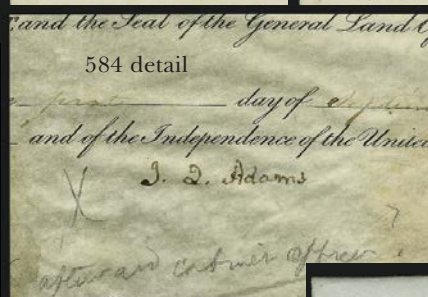 and the Seal of the General Land
584 detail
first day of
and of the Independence of the United
J. Q. Adams
afterward cabinet officer